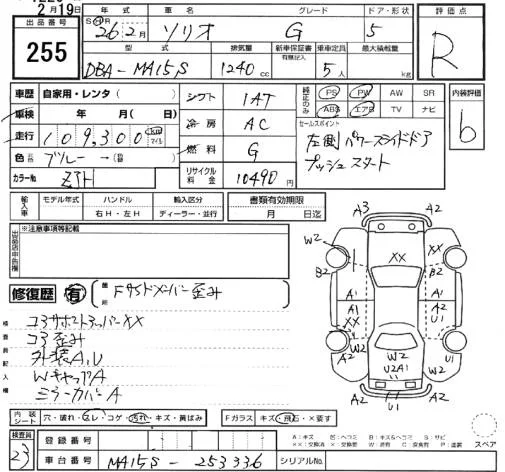 2月19日
出品番号
255
年式 車名 グレード ドア・形状 評価点
SH 26年2月 ソリオ G 5 R
型式 排気量 新車保証書 有無記入 乗車定員 最大積載量
DBA-MA15S 1240cc 5人 kg
車歴 自家用・レンタ( ) シフト 1AT 純正品のみ PS PW AW SR 内装評価
車検 年 月 日 冷房 AC ABS エアB TV ナビ b
走行 109,300 km マイル セールスポイント
左側パワースライドドア
色 ブルー→ 燃料 G プッシュスタート
カラーNo ZJH リサイクル料金 10490円
輸入車 モデル年式 ハンドル 輸入区分 書類有効期限
右H・左H ディーラー・並行 月 日迄
※注意事項等記載
出品店申告欄
修復歴 有 箇所 Fサイドメンバー歪み
検査員記入欄
コアサポートアッパーXX
コア歪み
外装A,U
WキャップA
ミラーカバーA
A3 A2
W2 XX XX
B2 B2
A1 A1 A2
A1 U1
XX
W2 W2 W2
A2 U2A1 U1
A2 U1 A2
内装シート 穴・破れ・スレ・コゲ・汚れ・キズ・黄ばみ Fガラス キズ・飛石・X要す
検査員 23
登録番号
車台番号 MA15S-253336 シリアルNo.
スペア